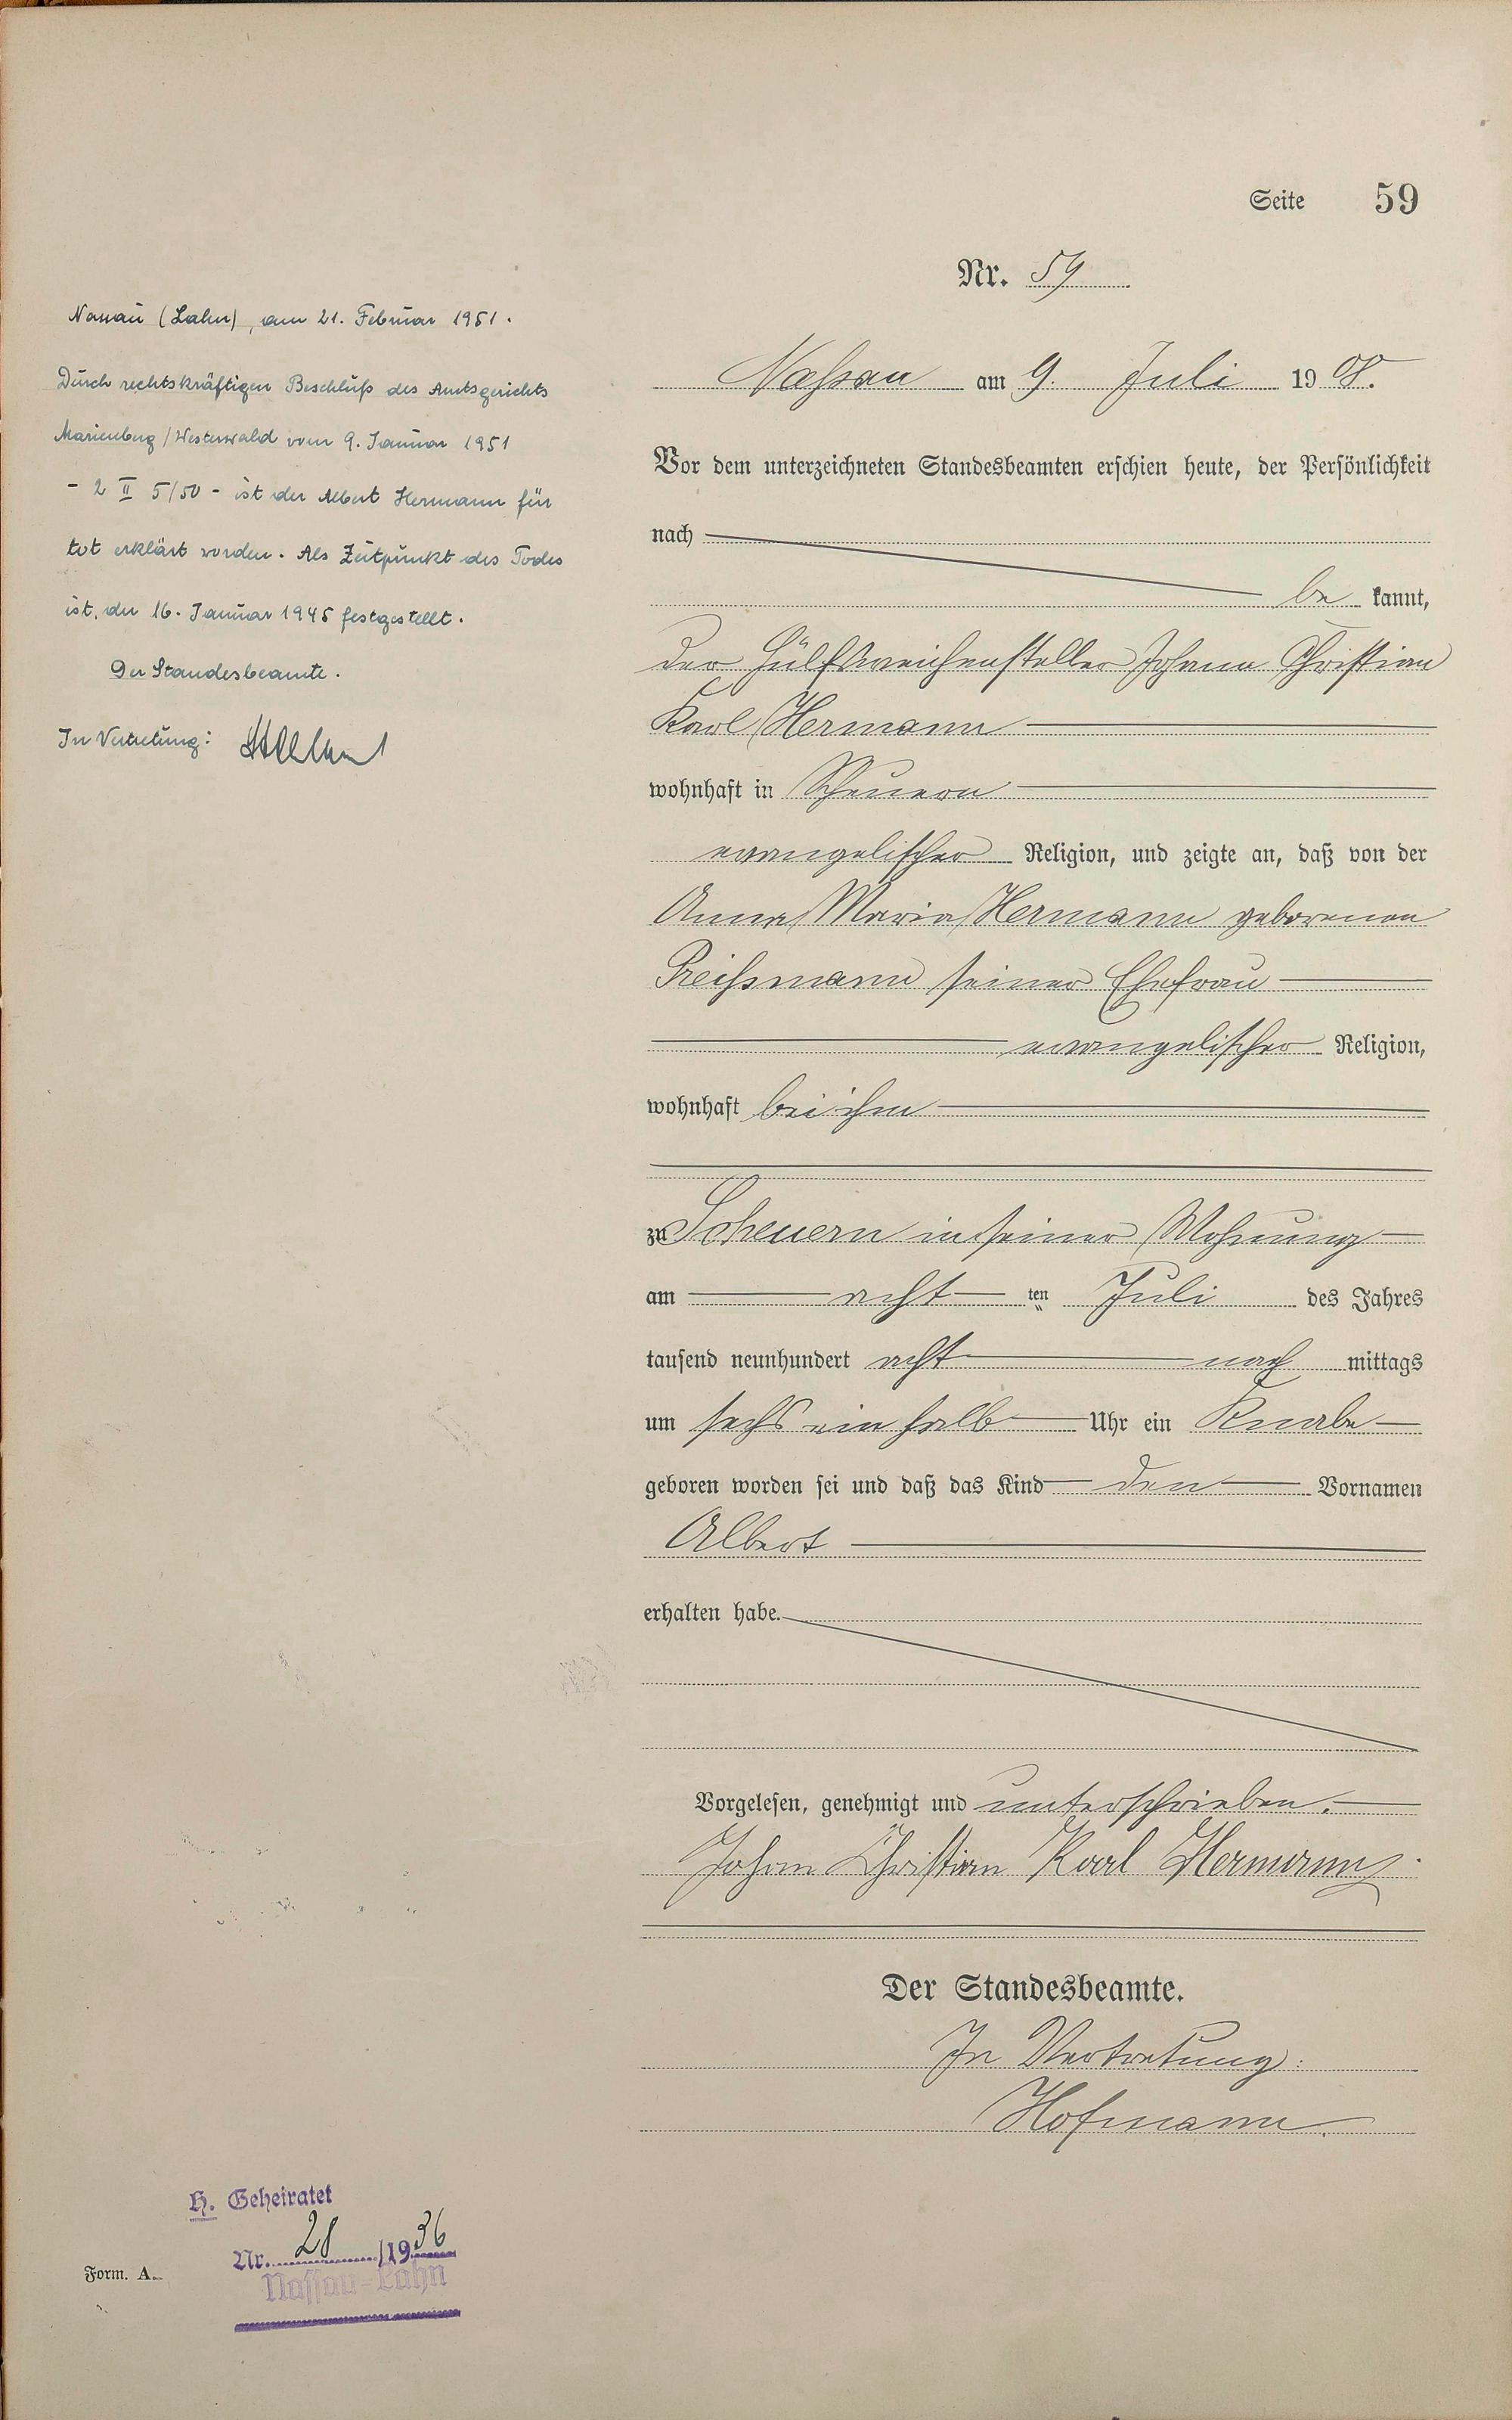 Seite 59
Nr. 59
Nassau am 9. Juli 1908.
Vor dem unterzeichneten Standesbeamten erschien heute, der Persönlichkeit
nach
be kannt,
der Hülfsweichensteller Johann Christian
Karl Hermann
wohnhaft in Scheuern
evangelischer Religion, und zeigte an, daß von der
Anna Maria Hermann geborenen
Preißmann seiner Ehefrau
evangelischer Religion,
wohnhaft bei ihm
zu Scheuern in seiner Wohnung
am acht ten Juli des Jahres
tausend neunhundert acht nach mittags
um sechs ein halb Uhr ein Knabe
geboren worden sei und daß das Kind den Vornamen
Albert
erhalten habe.
Vorgelesen, genehmigt und unterschrieben.
Johann Christian Karl Hermann.
Der Standesbeamte.
In Vertretung:
Hofmann.
Nassau (Lahn), am 21. Februar 1951.
Durch rechtskräftigen Beschluß des Amtsgerichts
Marienberg/Westerwald vom 9. Januar 1951
- 2 II 5/50 - ist der Albert Hermann für
tot erklärt worden. Als Zeitpunkt des Todes
ist der 16. Januar 1945 festgestellt.
Der Standesbeamte.
In Vertretung:
H. Geheiratet
Nr. 28 /1936
Nassau-Lahn
Form. A.